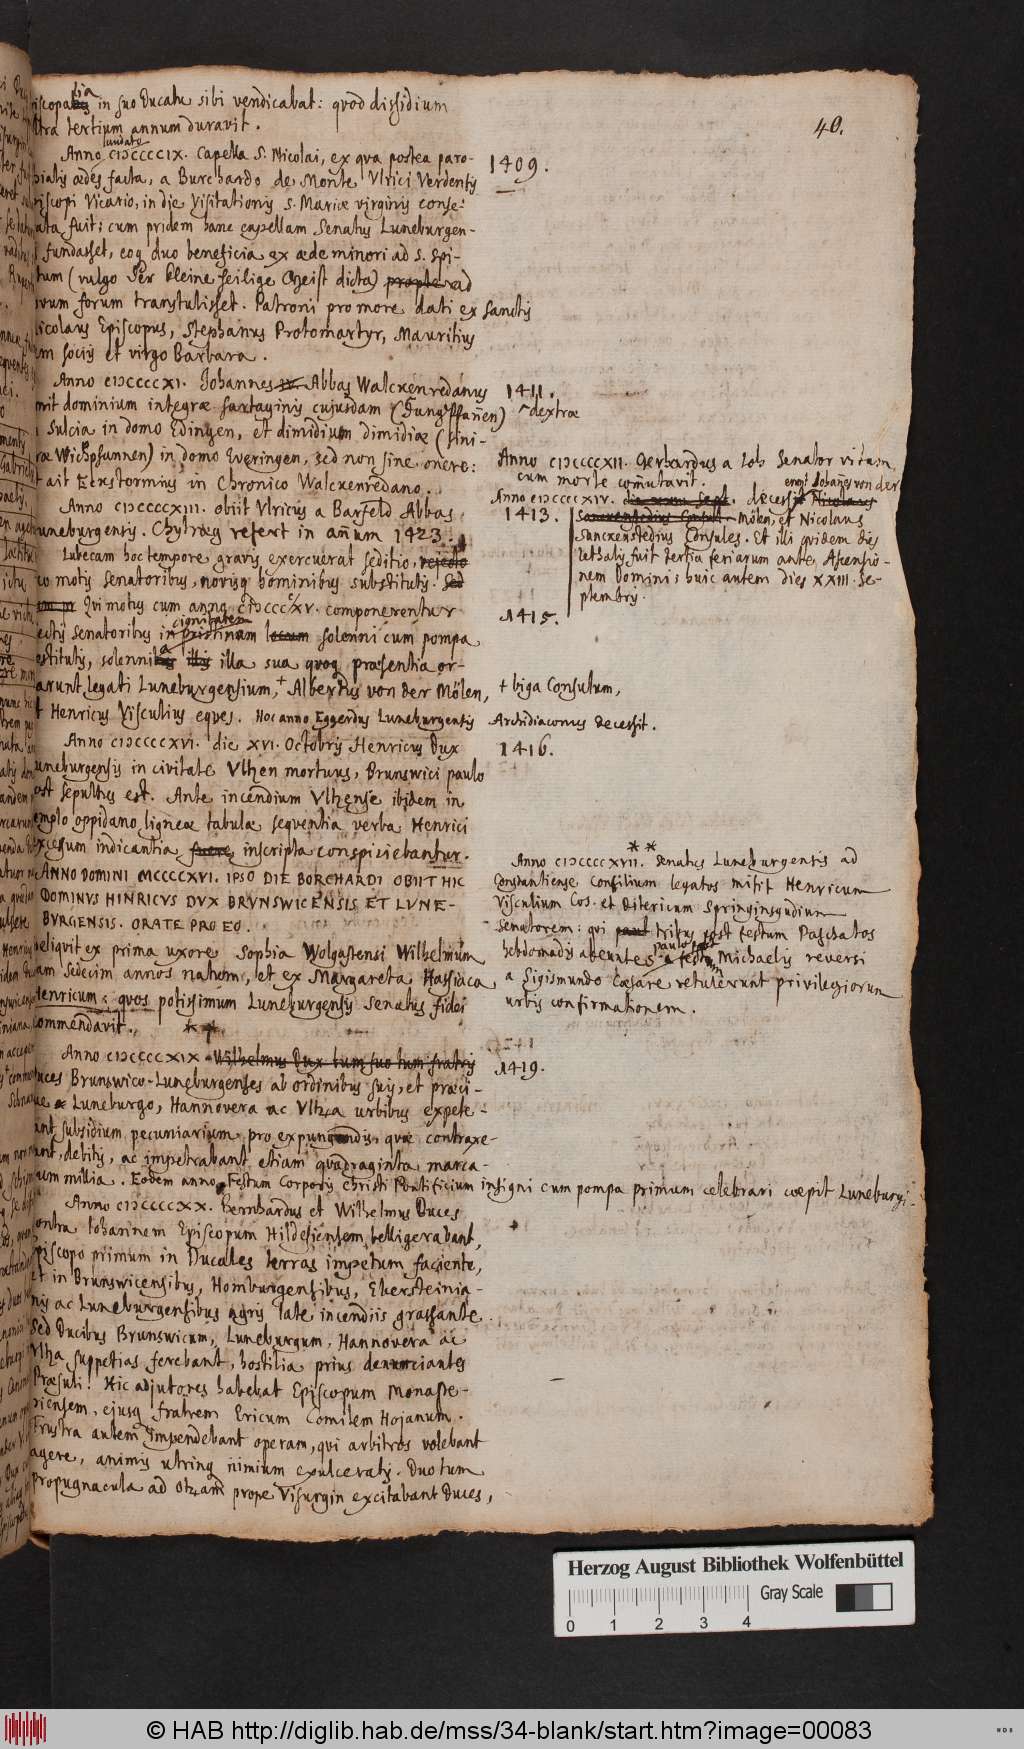 40.
in suo Ducatu sibi vendicabat: quod dissidium
tertium annum duravit.
fundata
Anno CIƆCCCCIX. Capella S. Nicolai, ex qva postea paro-
aedes facta, a Burchardo de Monte Ulrici Verdensis
Vicario, in die Visitationis S. Mariæ virginis conse-
fuit: cum pridem hanc capellam Senatus Luneburgen-
fundasset, eoq duo beneficia ex æde minori ad S. Spi-
(vulgo Der kleine heilige Geist dicta) propter ad
forum transtulisset. Patroni pro more dati ex sanctis
Nicolaus Episcopus, Stephanus Protomartyr, Mauritius
sociis et virgo Barbara.
1409.
Anno CIƆCCCCXI. Johannes IV. Abbas Walckenredanus
dominium integræ sartaginis cujusdam (Jung Pfannen)
Sulcia in domo Edingen, et dimidium dimidiæ (sini-
in domo Everingen, sed non sine onere:
ait Eckstormius in Chronico Walckenredano.
1411.
^ dextræ
Anno CIƆCCCCXII. Gerhardus a Loh Senator vitam
cum morte com̄utavit.
Anno CIƆCCCCXIII. obiit Ulricus a Barfeld Abbas
Luneburgensis. Chytræus refert in an̄um 1423.
Anno CIƆCCCCXIV. decessit Nicolaus
enim Johannes von der
1413.
Mölen, et Nicolaus
Consules. Et illi qvidem dies
lethalis fuit tertia feriarum ante Ascensio-
nem Domini: huic autem dies XXIII. Se-
ptembris.
Lubecam hoc tempore gravis exercuerat seditio, rejecto
motis senatoribus, novisq hominibus substitutis. Sed
Qvi motus cum anno CIƆCCCCXV. componerentur
dignitatem
senatoribus in pristinam locum solenni cum pompa
solenni illis illa sua qvoq præsentia or-
legati Luneburgensium, + Albertus von der Mölen,
Henricus Visculius eqves. Hoc anno Eggerdus Luneburgensis
1415.
+ biga Consulum,
Archidiaconus decessit.
Anno CIƆCCCCXVI. die XVI. Octobris Henricus Dux
Luneburgensis in civitate Ulzen mortuus, Brunswici paulo
post sepultus est. Ante incendium Ulzense ibidem in
templo oppidano ligneæ tabulæ seqventia verba Henrici
indicantia fuere inscripta conspiciebantur.
1416.
ANNO DOMINI MCCCCXVI. IPSO DIE BORCHARDI OBIIT HIC
DOMINUS HINRICUS DUX BRUNSWICENSIS ET LUNE-
BURGENSIS. ORATE PRO EO.
Reliquit ex prima uxore Sophia Wolgastensi Wilhelmum
sedecim annos natum, et ex Margareta Hassiaca
Henricum: qvos potissimum Luneburgensis Senatus fidei
commendavit. * *
* *
Anno CIƆCCCCXVII. Senatus Luneburgensis ad
Constantiense Consilium legatos misit Henricum
Visculium Cos. et Ditericum Springinsgudium
Senatorem: qvi tribus post festum Paschatos
hebdomadis abeuntes paulo post festum Michaelis reversi
a Sigismundo Cæsare retulerunt privilegiorum
urbis confirmationem.
Anno CIƆCCCCXIX. Wilhelmus Dux tum suo tum fratris
Duces Brunswico-Luneburgenses ab ordinibus suis, et præci-
Luneburgo, Hannovera ac Ultza urbibus expete-
subsidium pecuniarium pro expungendis, quæ contraxe-
debitis, ac impetrabant etiam quadraginta marca-
millia. Eodem anno Festum Corporis Christi Pontificium insigni cum pompa primum celebrari cœpit Luneburgi.
1419.
Anno CIƆCCCCXX. Bernhardus et Wilhelmus Duces
contra Johannem Episcopum Hildesiensem belligerabant,
Episcopo primum in Ducales terras impetum faciente,
et in Brunswicensibus, Homburgensibus, Ebersteinia-
nis ac Luneburgensibus agris late incendiis grassante.
Sed Ducibus Brunswicum, Luneburgum, Hannovera ac
Ultza suppetias ferebant, hostilia prius denunciantes
Præsuli. Hic adjutores habebat Episcopum Monaste-
riensem, ejusq fratrem Ericum Comitem Hojanum.
Frustra autem impendebant operam, qvi arbitros volebant
agere, animis utrinq nimium exulceratis. Duo tum
propugnacula ad Otzam prope Visurgin excitabant Duces,
Herzog August Bibliothek Wolfenbüttel
Gray Scale
0 1 2 3 4
© HAB http://diglib.hab.de/mss/34-blank/start.htm?image=00083